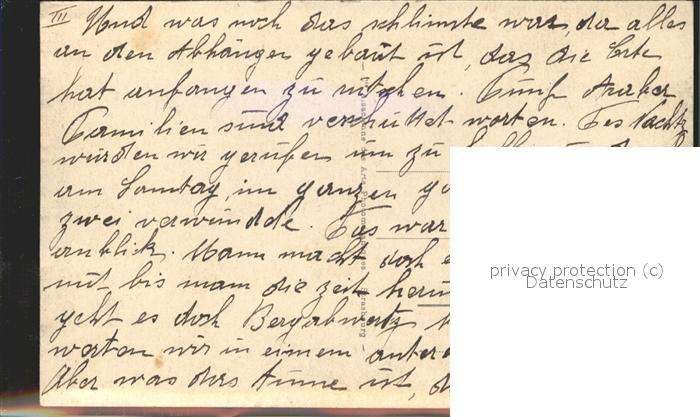 III Und was noch das schlimste war, da alles
an den Abhängen gebaut ist, das die Erte
hat anfangen zu rutschen. Fünf Araber
Familien sind verschüttet worten. Des Nachts
würden wir gerufen um zu
am Samtag, im ganzen
zwei verwundde. Das war
anblick. Mann macht doch
mit, bis mam die zeit herum
geht es doch Bergabwertz
worten wir in einem antere
Aber was das dumme ist, d
privacy protection (c)
Datenschutz